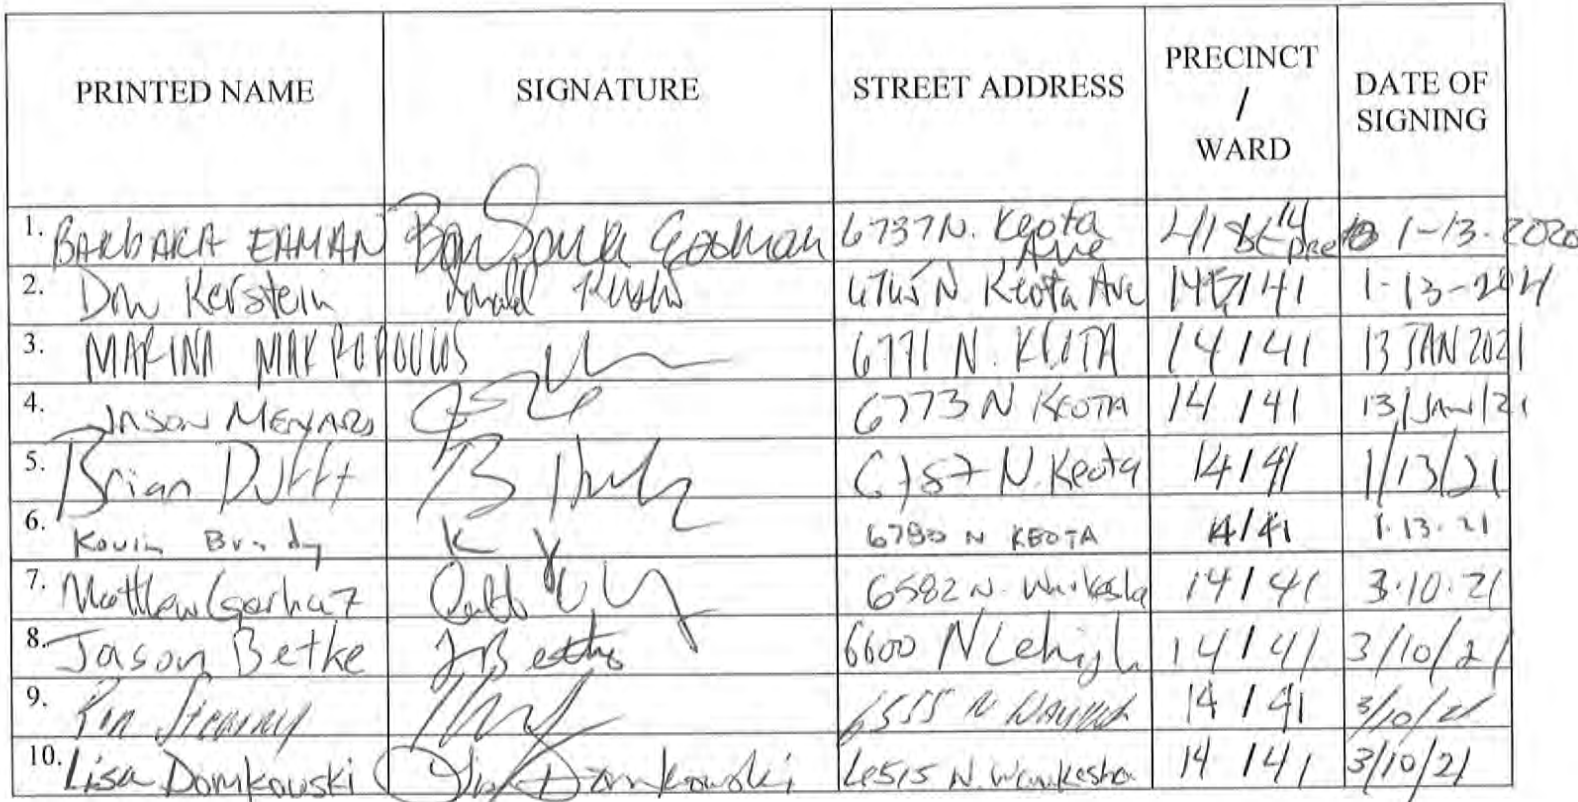 PRINTED NAME SIGNATURE STREET ADDRESS PRECINCT / WARD DATE OF SIGNING
1. BARBARA EAMAN 6737 N. Keota Ave 41st 14 pre 1-13-2020
2. Don Kerstein N Keota Ave 14/41 1-13-2021
3. MARINA MAKROPOULOS 6771 N. KEOTA 14/41 13 JAN 2021
4. JASON MENARD 6773 N KEOTA 14/41 13/JAN/21
5. Brian Duffy 6787 N. Keota 14/41 1/13/21
6. Kevin Brady N KEOTA 14/41 1.13.21
7. Matthew 6582 N. Waukesha 14/41 3.10.21
8. Jason Betke J Betke 6600 N Lehigh 14/41 3/10/21
9. 6555 N 14/41 3/10/21
10. Lisa Domkowski Lisa Domkowski 6515 N. Waukesha 14/41 3/10/21